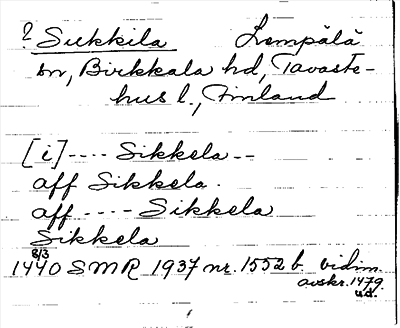 ? Sukkila Lempälä
sn, Birkkala hd, Tavaste-
hus l., Finland
[i]---- Sikkela --
aff Sikkela.
aff ---- Sikkela
Sikkela
8/3
1440 SMR 1937 nr. 1552 b vidim.
avskr. 1479
u.d.